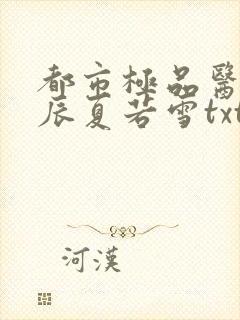 都市極品醫
辰夏若雪txt
河漢